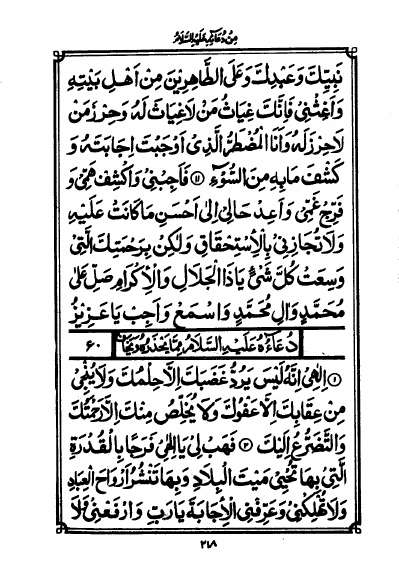 مِنْ دُعَائِهِ عَلَيْهِ السَّلَامُ
نَبِيِّكَ وَعَبْدِكَ وَعَلَى الطَّاهِرِينَ مِنْ أَهْلِ بَيْتِهِ
وَأَغِثْنِي فَإِنَّكَ غِيَاثُ مَنْ لَا غِيَاثَ لَهُ وَحِرْزُ مَنْ
لَا حِرْزَ لَهُ وَأَنَا الْمُضْطَرُّ الَّذِي أَوْجَبْتَ إِجَابَتَهُ وَ
كَشْفَ مَا بِهِ مِنَ السُّوءِ ⑪ فَأَجِبْنِي وَاكْشِفْ هَمِّي وَ
فَرِّجْ غَمِّي وَأَعِدْ حَالِي إِلَى أَحْسَنِ مَا كَانَتْ عَلَيْهِ
وَلَا تُجَازِنِي بِالْإِسْتِحْقَاقِ وَلَكِنْ بِرَحْمَتِكَ الَّتِي
وَسِعَتْ كُلَّ شَيْءٍ يَا ذَا الْجَلَالِ وَالْإِكْرَامِ صَلِّ عَلَى
مُحَمَّدٍ وَآلِ مُحَمَّدٍ وَاسْمَعْ وَأَجِبْ يَا عَزِيزُ
دُعَاؤُهُ عَلَيْهِ السَّلَامُ مِمَّا يَحْذَرُهُ وَيَخَافُ ٦٠
① إِلَهِي إِنَّهُ لَيْسَ يَرُدُّ غَضَبَكَ إِلَّا حِلْمُكَ وَلَا يُنْجِي
مِنْ عِقَابِكَ إِلَّا عَفْوُكَ وَلَا يُخَلِّصُ مِنْكَ إِلَّا رَحْمَتُكَ
وَالتَّضَرُّعُ إِلَيْكَ ② فَهَبْ لِي يَا إِلَهِي فَرَجًا بِالْقُدْرَةِ
الَّتِي بِهَا تُحْيِي مَيْتَ الْبِلَادِ وَبِهَا تَنْشُرُ أَرْوَاحَ الْعِبَادِ
وَلَا تُهْلِكْنِي وَعَرِّفْنِي الْإِجَابَةَ يَا رَبِّ وَارْفَعْنِي وَلَا
٢١٨